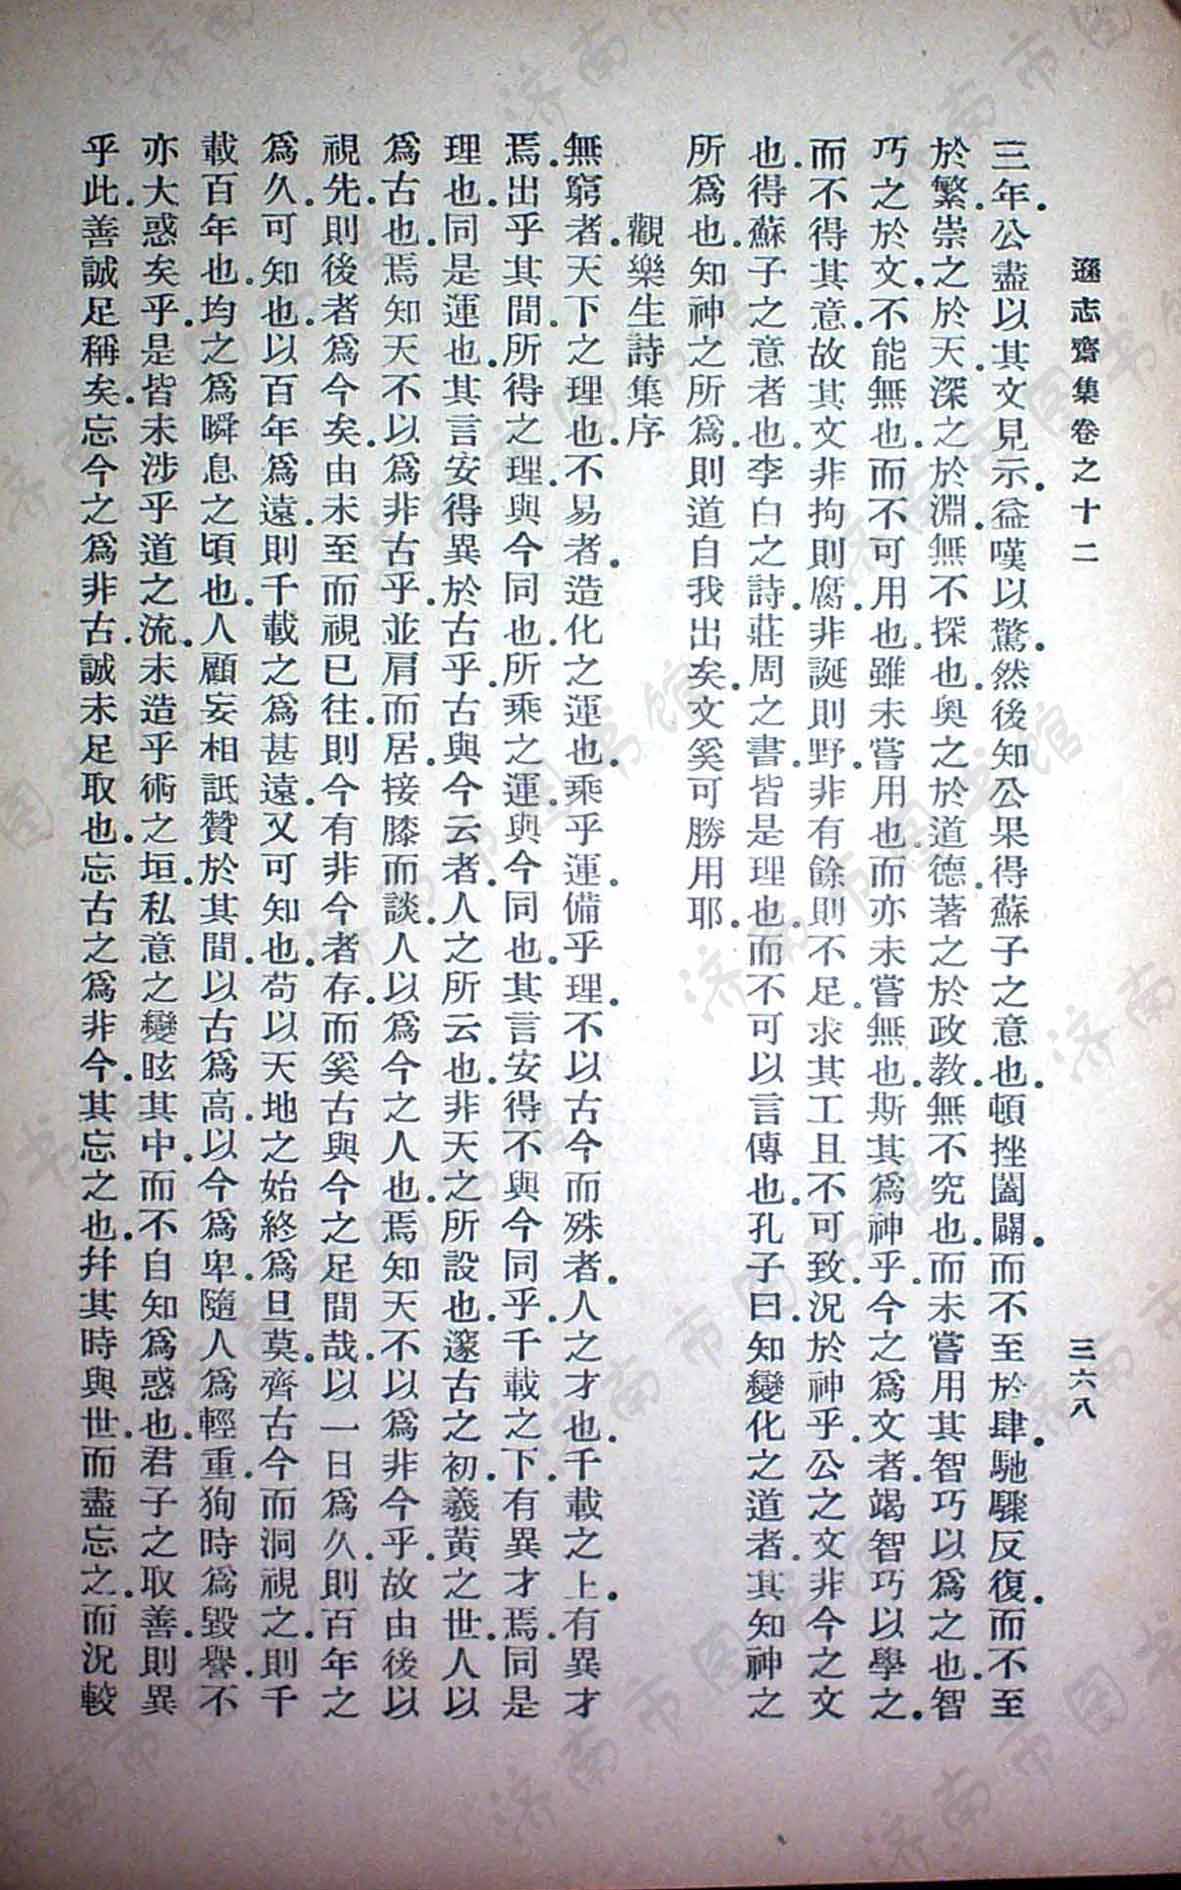 遜志齋集卷之十二
三六八
三年.公盡以其文見示.益嘆以驚.然後知公果得蘇子之意也.頓挫闔闢.而不至於肆.馳驟反復.而不至
於繁.崇之於天.深之於淵.無不探也.奧之於道德.著之於政教.無不究也.而未嘗用其智巧以爲之也.智
巧之於文.不能無也.而不可用也.雖未嘗用也.而亦未嘗無也.斯其爲神乎.今之爲文者.竭智巧以學之.
而不得其意.故其文非拘則腐.非誕則野.非有餘則不足.求其工且不可致.況於神乎.公之文.非今之文
也.得蘇子之意者也.李白之詩.莊周之書.皆是理也.而不可以言傳也.孔子曰.知變化之道者.其知神之
所爲也.知神之所爲.則道自我出矣.文奚可勝用耶.
觀樂生詩集序
無窮者.天下之理也.不易者.造化之運也.乘乎運.備乎理.不以古今而殊者.人之才也.千載之上.有異才
焉.出乎其間.所得之理.與今同也.所乘之運.與今同也.其言安得不與今同乎.千載之下.有異才焉.同是
理也.同是運也.其言安得異於古乎.古與今云者.人之所云也.非天之所設也.邃古之初.羲黃之世.人以
爲古也.焉知天不以爲非古乎.並肩而居.接膝而談.人以爲今之人也.焉知天不以爲非今乎.故由後以
視先.則後者爲今矣.由未至而視已往.則今有非今者存.而奚古與今之足間哉.以一日爲久.則百年之
爲久.可知也.以百年爲遠.則千載之爲甚遠.又可知也.苟以天地之始終爲旦莫.齊古今而洞視之.則千
載百年也.均之爲瞬息之頃也.人顧妄相詆贊於其間.以古爲高.以今爲卑.隨人爲輕重.狥時爲毀譽.不
亦大惑矣乎.是皆未涉乎道之流.未造乎術之垣.私意之變眩其中.而不自知爲惑也.君子之取善.則異
乎此.善誠足稱矣.忘今之爲非古.誠未足取也.忘古之爲非今.其忘之也.幷其時與世.而盡忘之.而況較